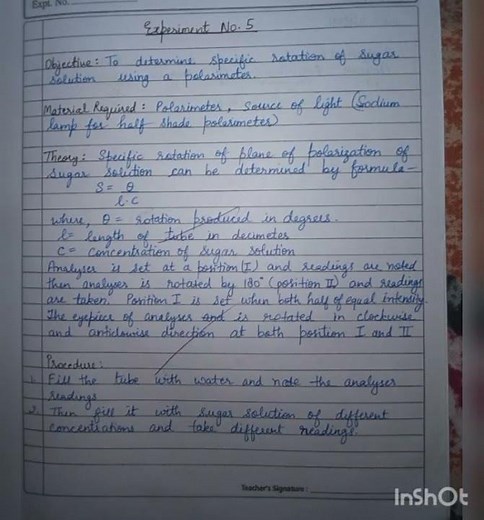 Expt. No.
Experiment No. 5
Objective: To determine specific rotation of sugar
solution using a polarimeter.
Material Required: Polarimeter, Source of light (Sodium
lamp for half shade polarimeter)
Theory: Specific rotation of plane of polarization of
sugar solution can be determined by formula-
S = θ
l.C
where, θ = rotation produced in degrees.
l = length of tube in decimeter
C = concentration of sugar solution
Analyser is set at a position (I) and readings are noted
then analyser is rotated by 180° (position II) and readings
are taken. Position I is set when both half of equal intensity.
The eyepiece of analyser and is rotated in clockwise
and anticlowise direction at both position I and II
Procedure:
1. Fill the tube with water and note the analyser
readings
2. Then fill it with sugar solution of different
concentrations and take different readings.
Teacher's Signature:
InShOt